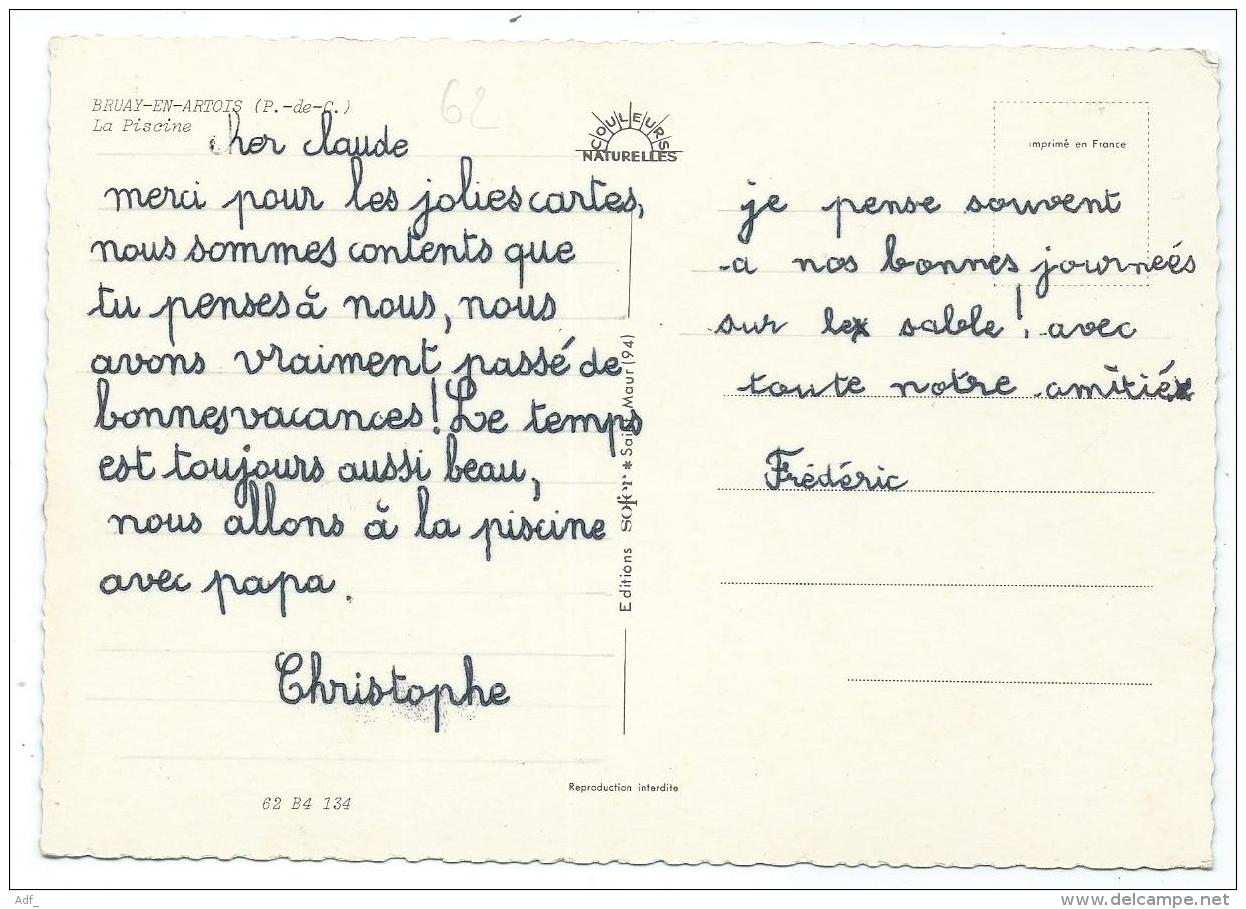 BRUAY-EN-ARTOIS (P.-de-C.)
La Piscine
62
cher claude
merci pour les jolies cartes,
nous sommes contents que
tu penses à nous, nous
avons vraiment passé de
bonnes vacances! Le temps
est toujours aussi beau,
nous allons à la piscine
avec papa.
Christophe
62 B4 134
COULEURS
NATURELLES
Editions sofer * Saint-Maur (94)
Reproduction interdite
imprimé en France
je pense souvent
a nos bonnes journeés
sur le sable! avec
toute notre amitié
Frédéric
Adf_
www.delcampe.net